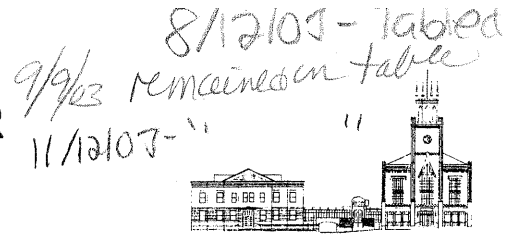 8/12/03 - Tabled
9/9/03 remained on table
11/12/03 - " "